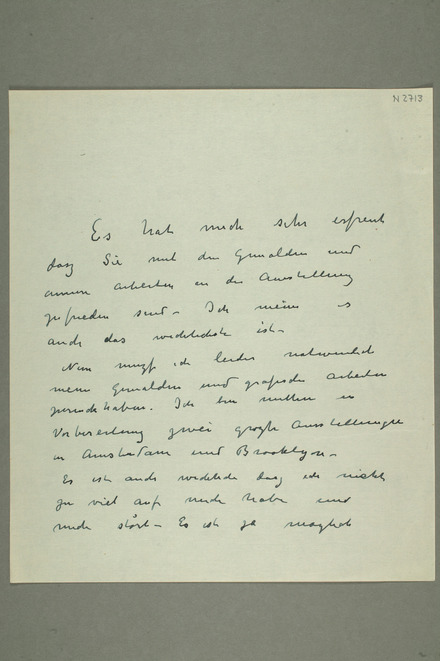 N 2713
Es hat mich sehr erfreut
dasz Sie mit den Gemälden und
arbeiten in der Ausstellung
zufrieden sind - Ich meine es
auch das wichtichste ist -
Nun musz ich leider notwendich
meine Gemälden und grafische Arbeiten
zurück haben. Ich bin mitten in
Vorbereitung zwei groszte Ausstellungen
in Amsterdam und Brooklyn -
Es ist auch wichtich dasz ich nichts
zu viel auf mich habe und
mich stört - Es ist ja